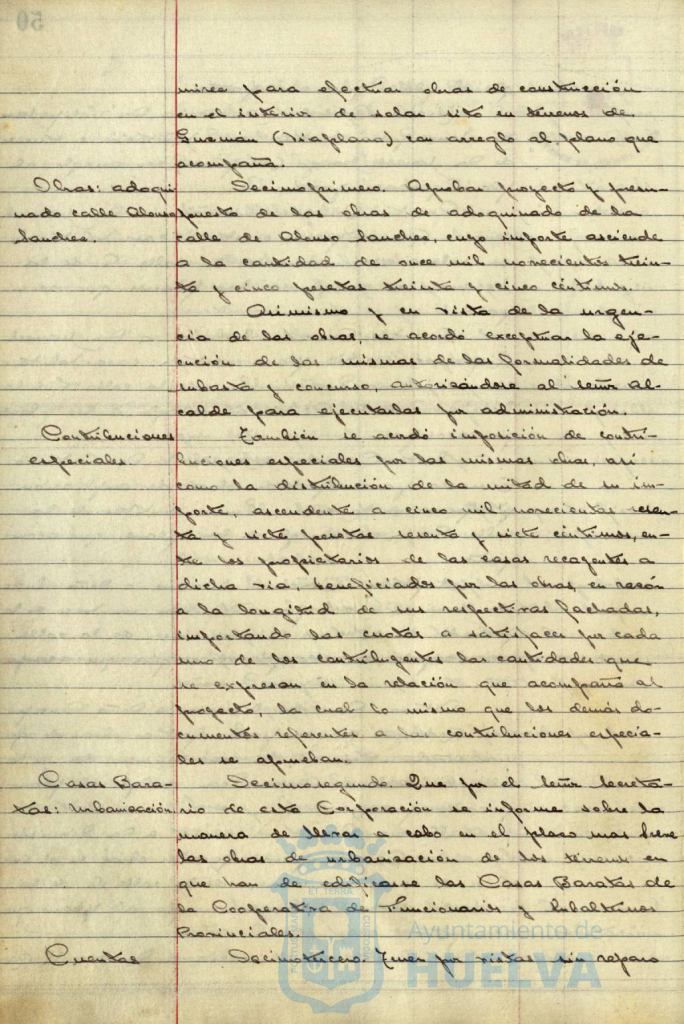 mirez para efectuar obras de construcción
en el interior de solar sito en terrenos de
Guzmán (Viaplana) con arreglo al plano que
acompaña.
Obras: adoqui
nado calle Alonso
Sanchez.
Decimoprimero. Aprobar proyecto y presu-
puesto de las obras de adoquinado de la
calle de Alonso Sanchez, cuyo importe asciende
a la cantidad de once mil novecientas trein-
ta y cinco pesetas treinta y cinco céntimos.
Asimismo y en vista de la urgen-
cia de las obras, se acordó exceptuar la eje-
cución de las mismas de las formalidades de
subasta y concurso, autorizándose al señor Al-
calde para ejecutarlas por administración.
Contribuciones
especiales.
También se acordó imposición de contri-
buciones especiales por las mismas obras, así
como la distribución de la mitad de su im-
porte, ascendente a cinco mil novecientas sesen-
ta y siete pesetas sesenta y siete céntimos, en-
tre los propietarios de las casas recayentes a
dicha vía, beneficiados por las obras, en razón
a la longitud de sus respectivas fachadas,
importando las cuotas a satisfacer por cada
uno de los contribuyentes las cantidades que
se expresan en la relación que acompaña al
proyecto, la cual lo mismo que los demás do-
cumentos referentes a las contribuciones especia-
les se aprueban.
Casas Bara-
tas: Urbanización
Decimosegundo. Que por el señor Secreta-
rio de esta Corporación se informe sobre la
manera de llevar a cabo en el plazo mas breve
las obras de urbanización de los terrenos en
que han de edificarse las Casas Baratas de
la Cooperativa de Funcionarios y Subalternos
Provinciales.
Cuentas
Decimotercero. Tener por vistas sin reparo
Ayuntamiento de
HUELVA
50